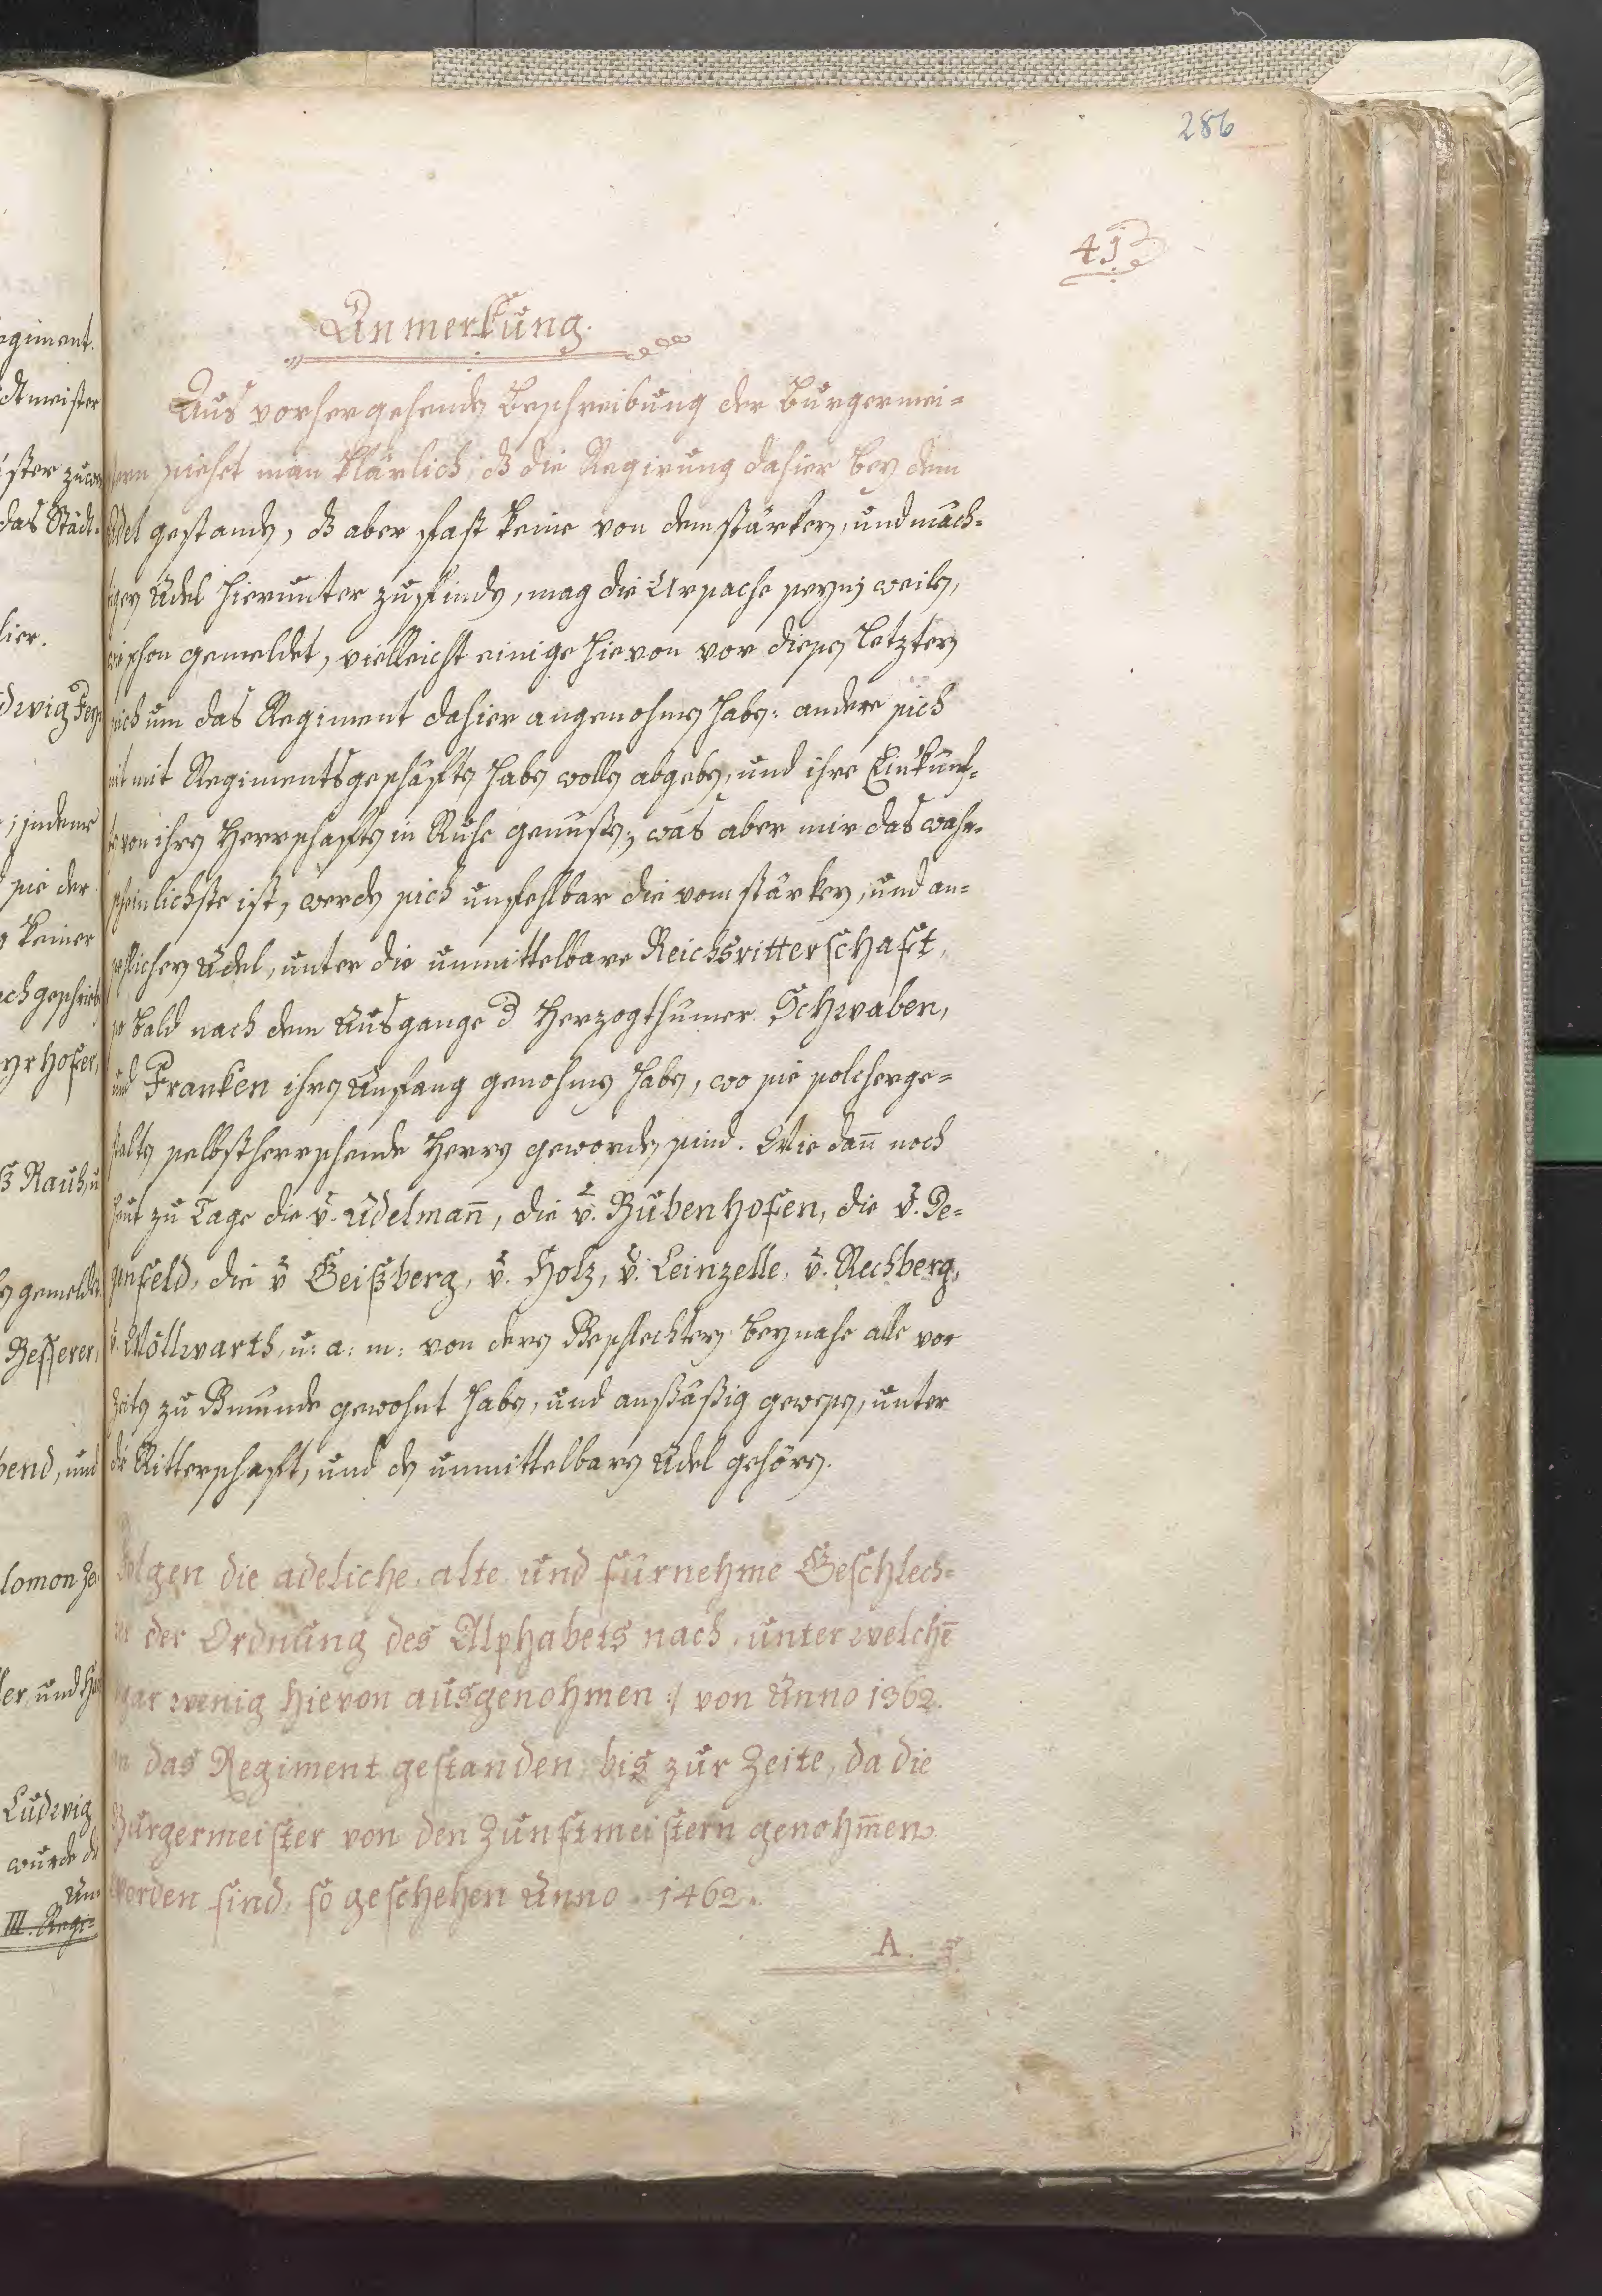 286
41
Anmerkung.
Aus vorhergehender Beschreibung der Burgermei=
stern siehet man klärlich, dß die Regirung dahier bey dem
Adel gestanden, dß aber fast keine von dem stärkern, und mäch=
tigen Adel hierunter zufinden, mag die Ursache seyn; weilen,
wie schon gemeldet, vielleicht einige hievon vor diesen letztern
sich um das Regiment dahier angenohmen haben: andere sich
nit mit Regimentsgeschäfften haben wollen abgeben, und ihre Einkünf=
te von ihren Herrschafften in Ruhe genußen; was aber mir das wahr=
scheinlichste ist, werden sich unfehlbar die vom stärkern, und an=
sehlichen Adel, unter die unmittelbare Reichsritterschaft,
so bald nach dem Ausgange d Herzogthumer Schwaben,
und Franken ihren Anfang genohmen haben, wo sie solcherge=
stalten selbstherrschende Herren geworden sind. Wie dañ noch
heut zu Tage die v. Adelmañ, die v. Bubenhofen, die v. De=
genfeld, die v Geißberg, v. Holz, v. Leinzelle, v. Rechberg,
v. Wöllwarth, u: a: m: von deren Geschlechtern beynahe alle vor
Zeiten zu Gmünde gewohnt haben, und anßäßig gewesen, unter
die Ritterschafft, und den unmittelbaren Adel gehören.
Folgen die adeliche, alte und fürnehme Geschlech=
ter der Ordnung des Alphabets nach, unter welchē
gar wenig hievon ausgenohmen :/ von Anno 1362.
an das Regiment gestanden bis zur Zeite, da die
Burgermeister von den Zunftmeistern genohm̄en
worden sind, so geschehen Anno 1462.
A.